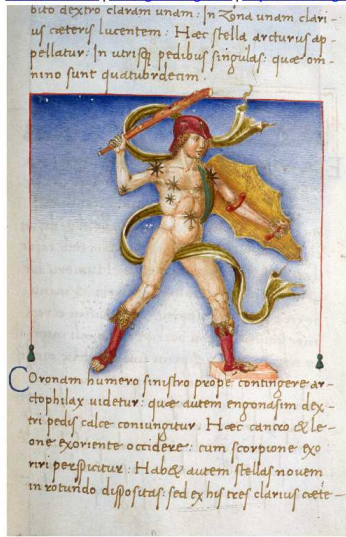 bito dextro claram unam: In Zona unam clari-
us cæteris lucentem: Hæc stella arcturus ap-
pellatur: In utrisq; pedibus singulas: quæ om-
nino sunt quatuordecim.
Coronam humero sinistro prope contingere ar-
ctophilax uidetur: quæ autem engonasim dex-
tri pedis calce coniungitur. Hæc cancro & le-
one exoriente occidere: cum scorpione exo
riri perspicitur. Habet autem stellas nouem
in rotundo dispositas: sed ex his tres clarius cæte-